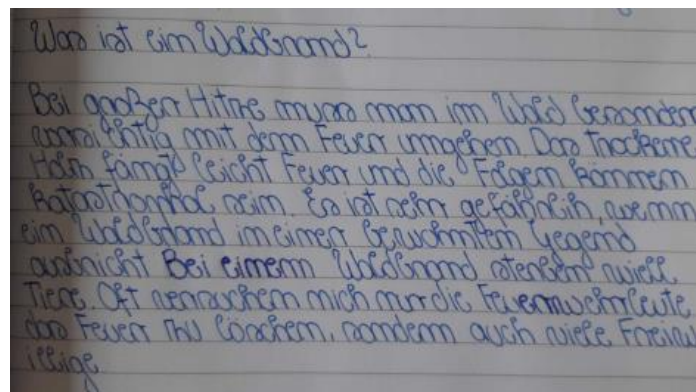 Was ist ein Waldbrand?
Bei großer Hitze muss man im Wald besonders
vorsichtig mit dem Feuer umgehen. Das trockene
Holz fängt leicht Feuer und die Folgen können
katastrophal sein. Es ist sehr gefährlich, wenn
ein Waldbrand in einer bewohnten Gegend
ausbricht Bei einem Waldbrand sterben viele
Tiere. Oft versuchen nicht nur die Feuerwehrleute,
das Feuer zu löschen, sondern auch viele Freiw
illige